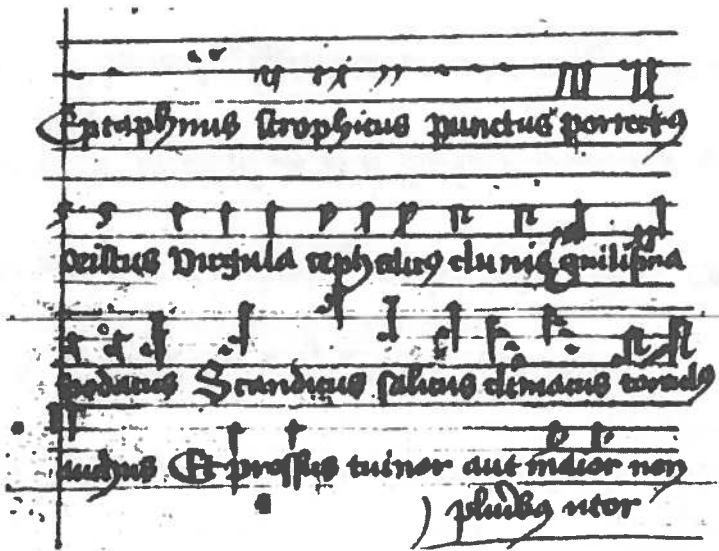 Eptaphonus strophicus punctus porrectꝯ
oriscus Virgula cephalicꝯ clunis quilisma
podatus Scandicus salicus climacus torculꝯ
anchus Et pressus minor aut maior non
pluribꝯ utor